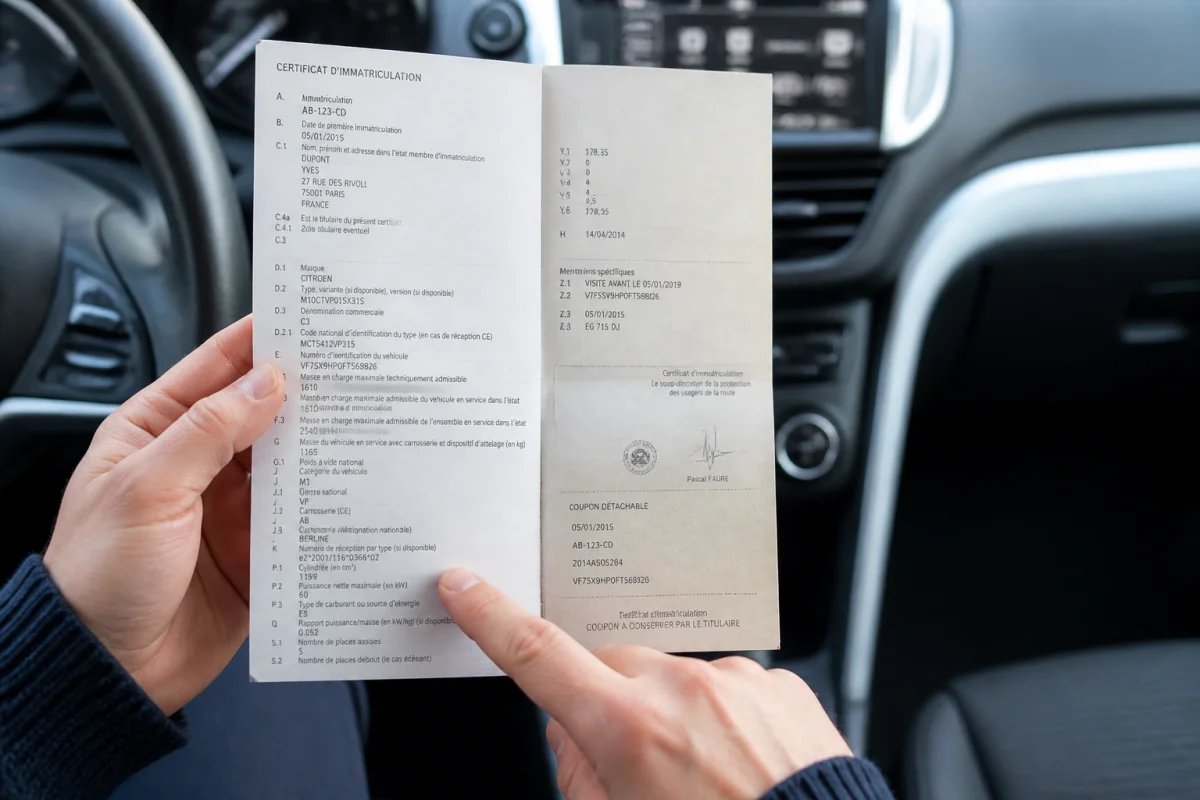 CERTIFICAT D'IMMATRICULATION
A. Immatriculation
AB-123-CD
B. Date de première immatriculation
05/01/2015
C.1 Nom, prénom et adresse dans l'état membre d'immatriculation
DUPONT
YVES
27 RUE DES RIVOLI
75001 PARIS
FRANCE
C.4a Est le titulaire du présent certificat
C.4.1 titulaire éventoel
C.3
D.1 Marque
CITROEN
D.2 Type, variante (si disponible), version (si disponible)
M10CTVP015X31S
D.3 Dénomination commerciale
C3
D.2.1 Code national d'identification du type (en cas de réception CE)
MCT5412VP315
E. Numéro d'identification du vehicule
VF7SX9HPOFT569826
Masse en charge maximale techniquement admissible
1610
charge maximale admissible du véhicule en service dans l'état
1610
F.3 Masse en charge maximale admissible de l'ensemble en service dans l'état
2540
G Masse du véhicule en service avec carrosserie et dispositif d'attelage (en kg)
1165
G.1 Poids à vide national
J Catégorie du vehicule
J M1
J.1 national
J VP
J.2 Carrosserie (CE)
J AB
BERLINE
K Numéro de réception par type (si disponible)
e2*2001/116*0368*02
P.1 Cylindrée (en cm³)
1199
P.2 Puissance nette maximale (en kW)
60
P.3 Type de carburant ou source d'énergie
ES
Q Rapport puissance/masse (en kW/kg) (si disponible
0.052
S.1 Nombre de places assises
5
S.2 Nombre de places debout (le cas écéant)
Y.1 178,35
0
0
4
4
0,5
Y.6 178,35
H 14/04/2014
spécifiques
Z.1 VISITE AVANT LE 05/01/2019
Z.2 V7FSSV9HPOFTS68I26
Z.3 05/01/2015
EG 715 DJ
Certificat d'immatriculation
Le de la protection
des usagers de la route
Pascal FAURE
COUPON DÉTACHABLE
05/01/2015
AB-123-CD
2014AS05284
VF7SX9HPOFT568926
d'immatriculation
COUPON A CONSERVER PAR LE TITULAIRE